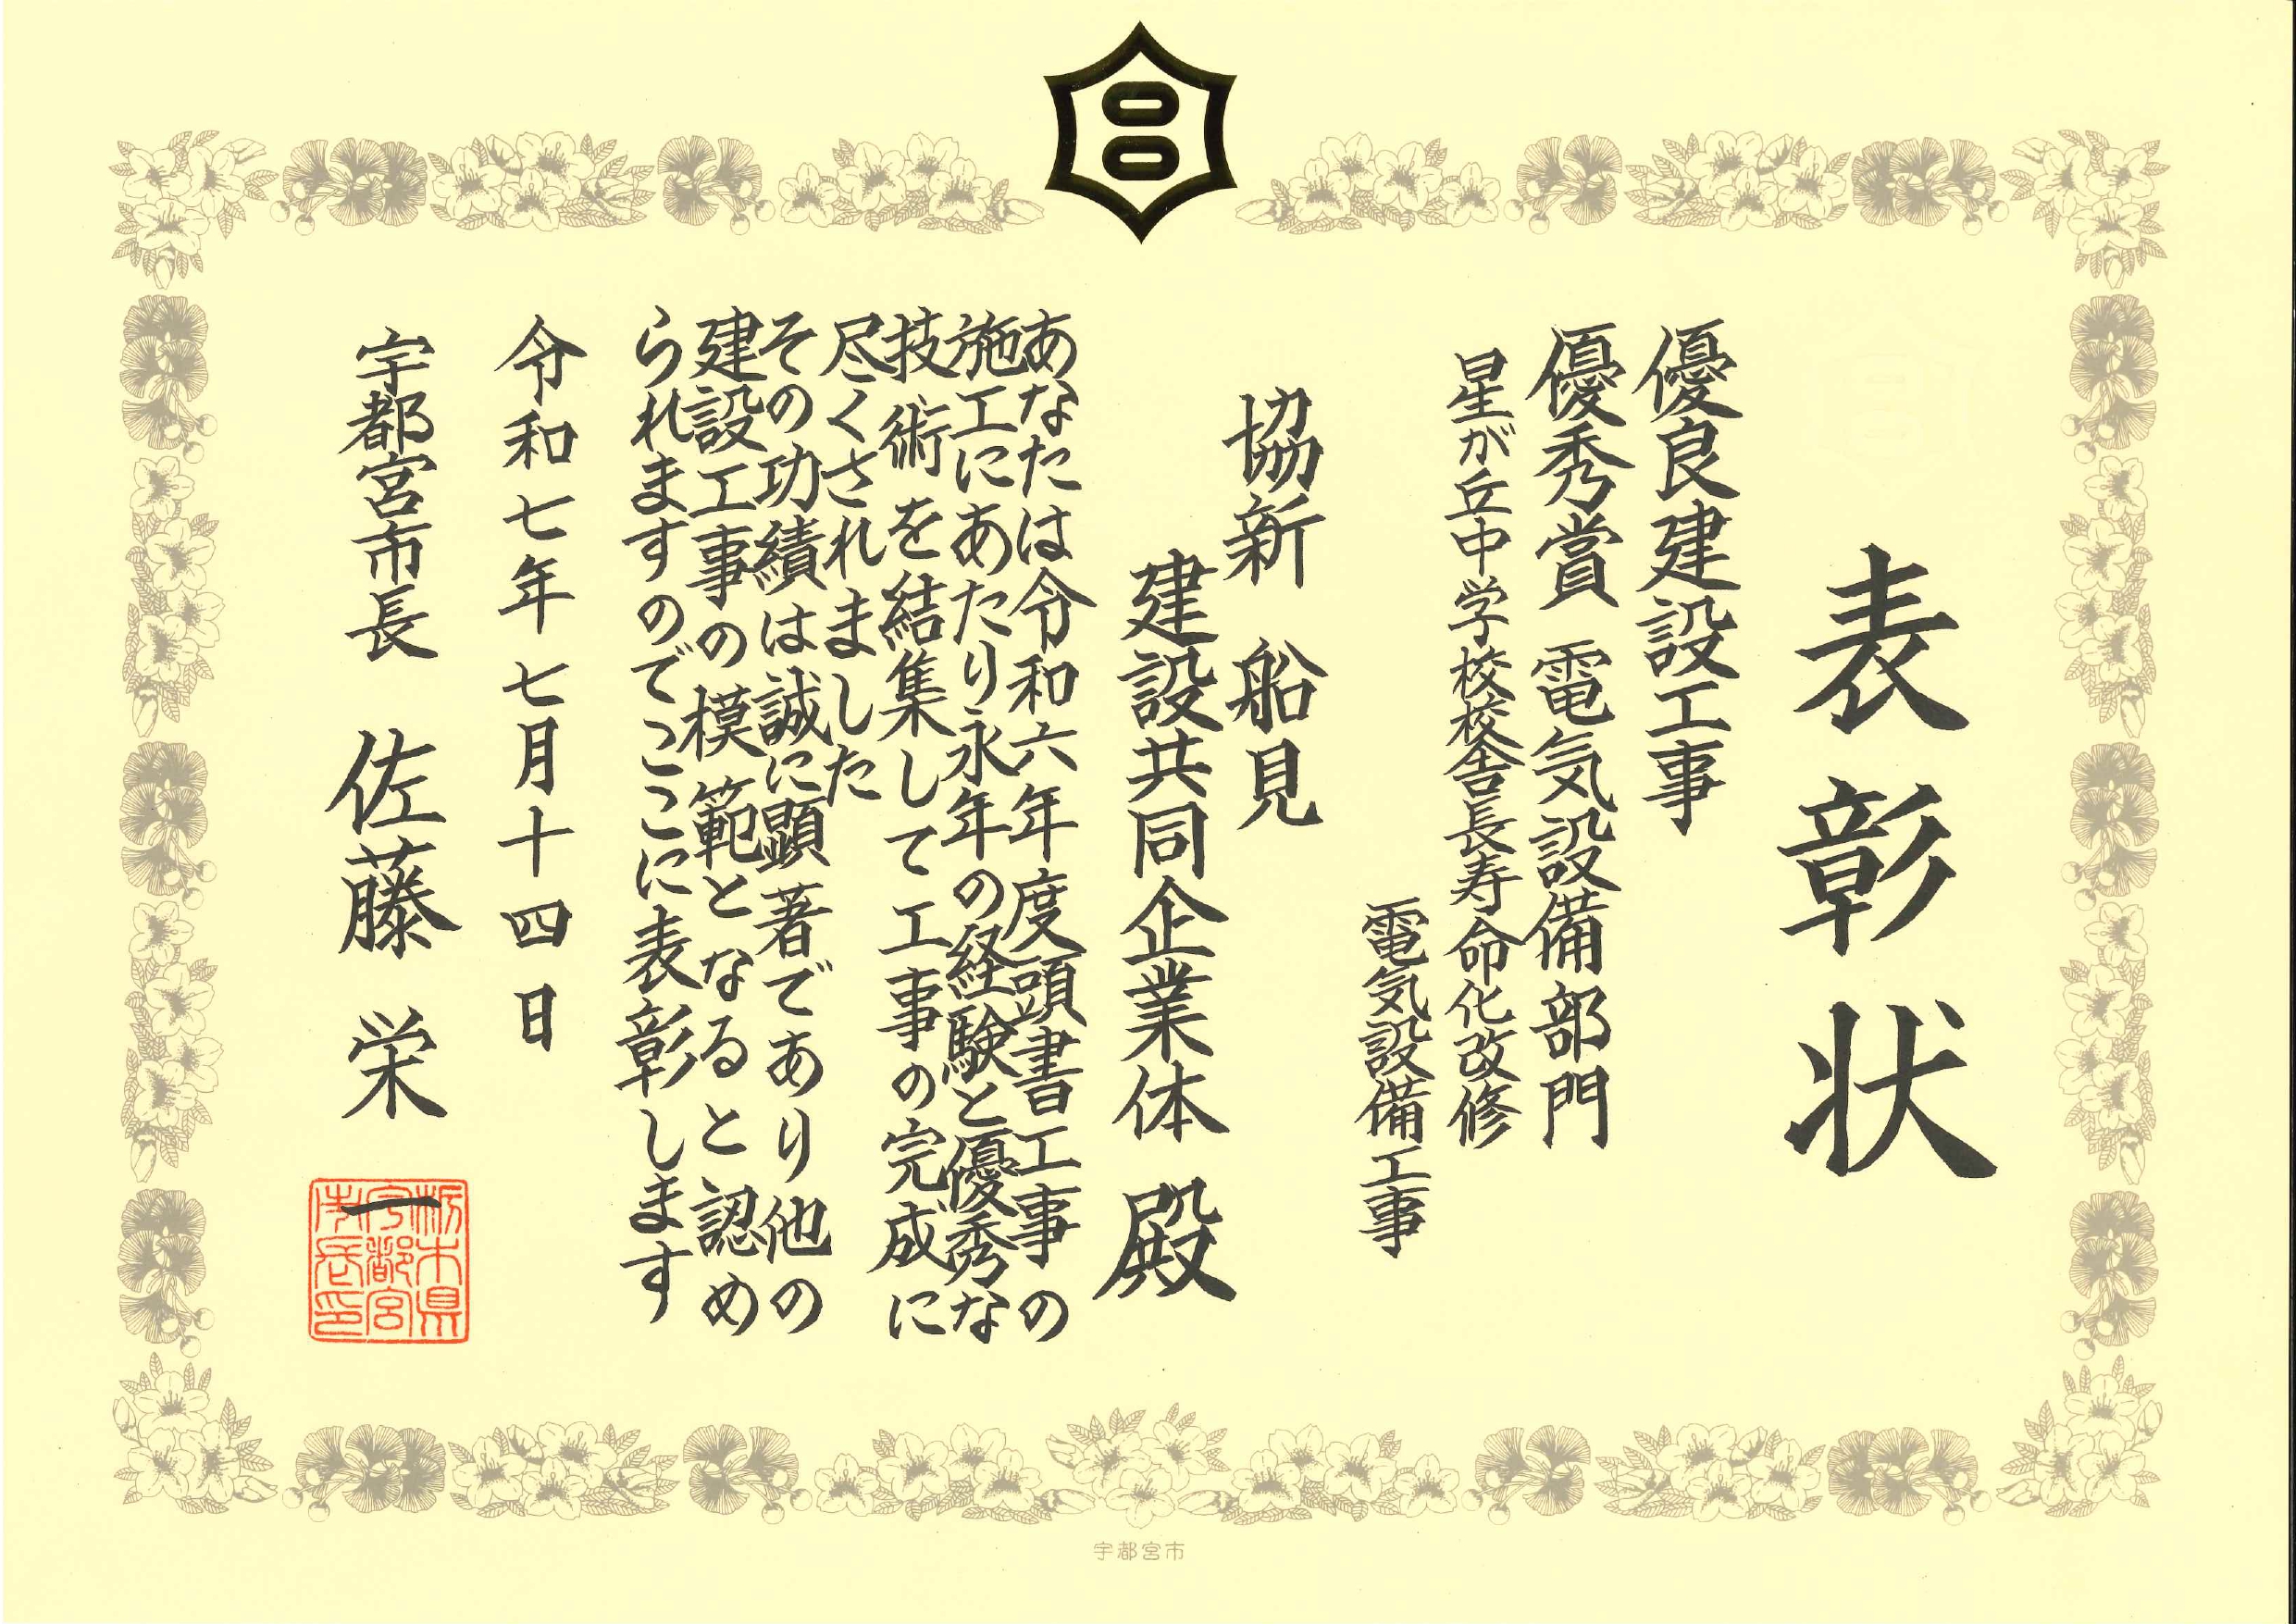 表彰状
優良建設工事
優秀賞 電気設備部門
星が丘中学校校舎長寿命化改修
電気設備工事
協新 船見
建設共同企業体 殿
あなたは令和六年度頭書工事の
施工にあたり永年の経験と優秀な
技術を結集して工事の完成に
尽くされました
その功績は誠に顕著であり他の
建設工事の模範となると認め
られますのでここに表彰します
令和七年七月十四日
宇都宮市長 佐藤栄一
栃木県
宇都宮
市長印
宇都宮市